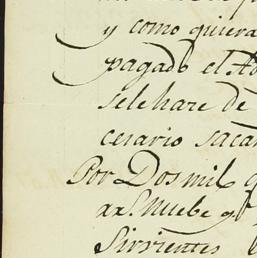 y como quiera
pagado el
sele hare de
cesario saca
Por Dos mil
Nuebe y
Sirvientes